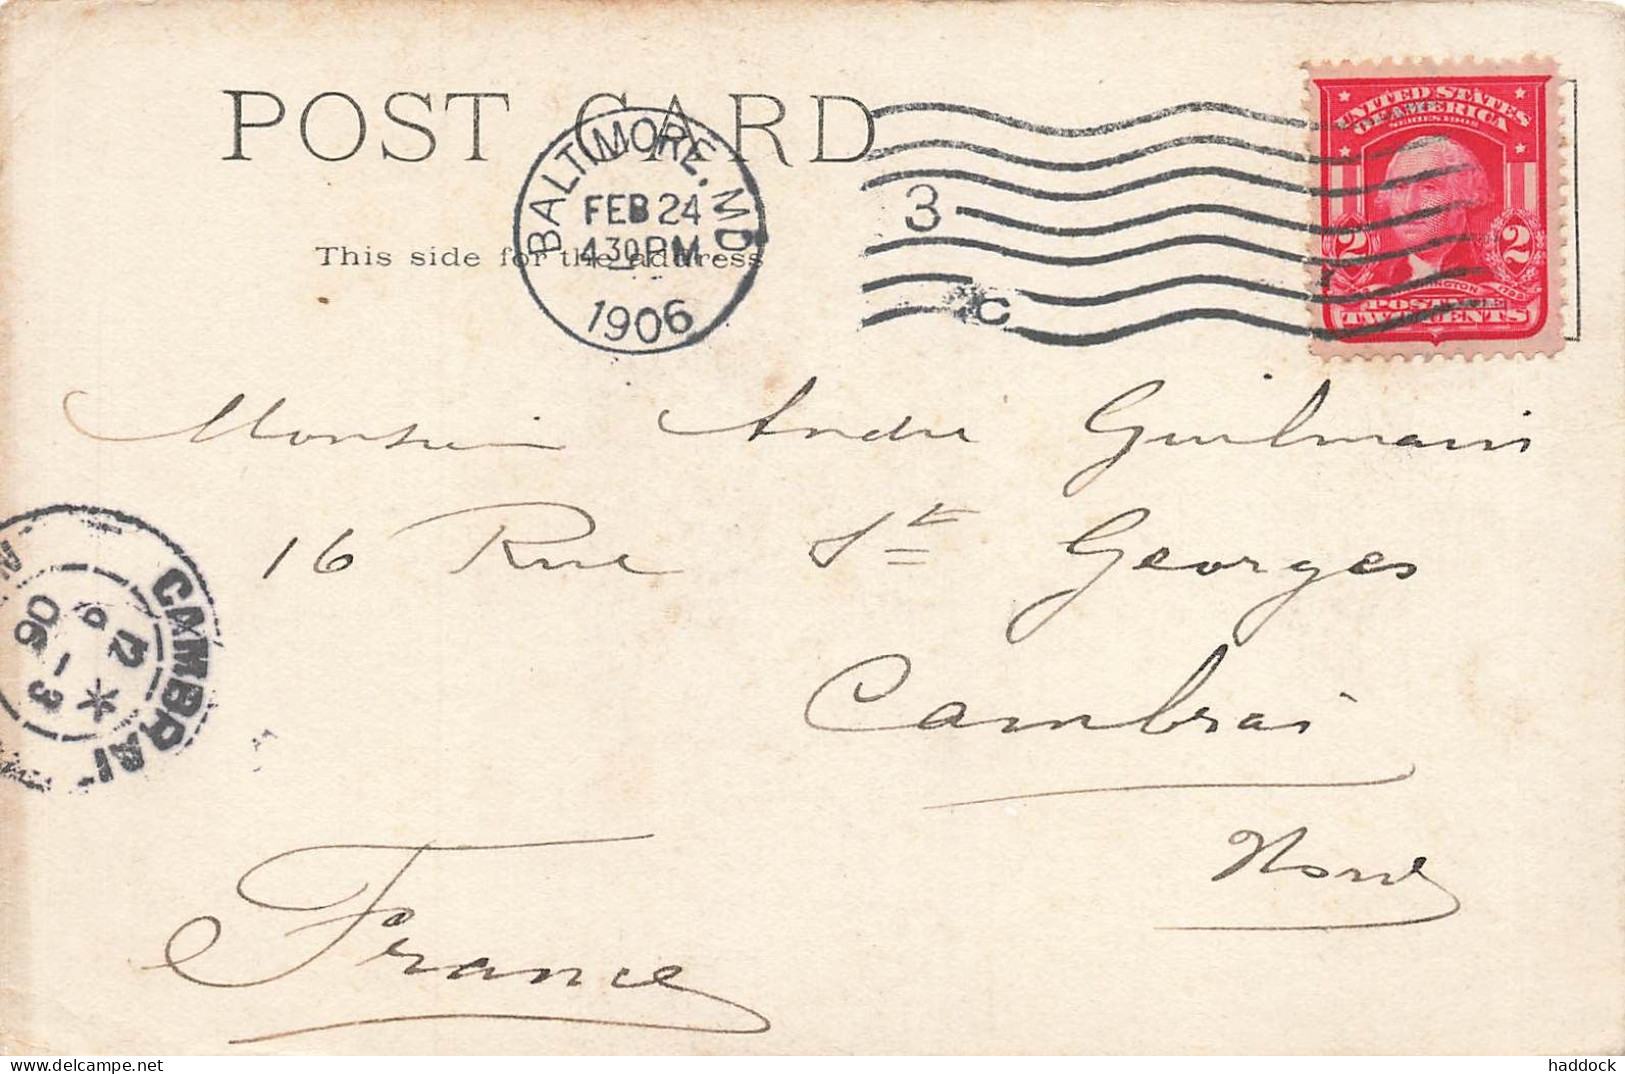 POST CARD
This side for the address
BALTIMORE, MD.
FEB 24
4 30 PM
1906
3
C
UNITED STATES
OF AMERICA
SERIES 1902
2 2
WASHINGTON 1799
POSTAGE
TWO CENTS
Monsieur André Guilmain
16 Rue St Georges
Cambrai
Nord
France
CAMBRAI
12
3 - 3
06
delcampe.net
haddock